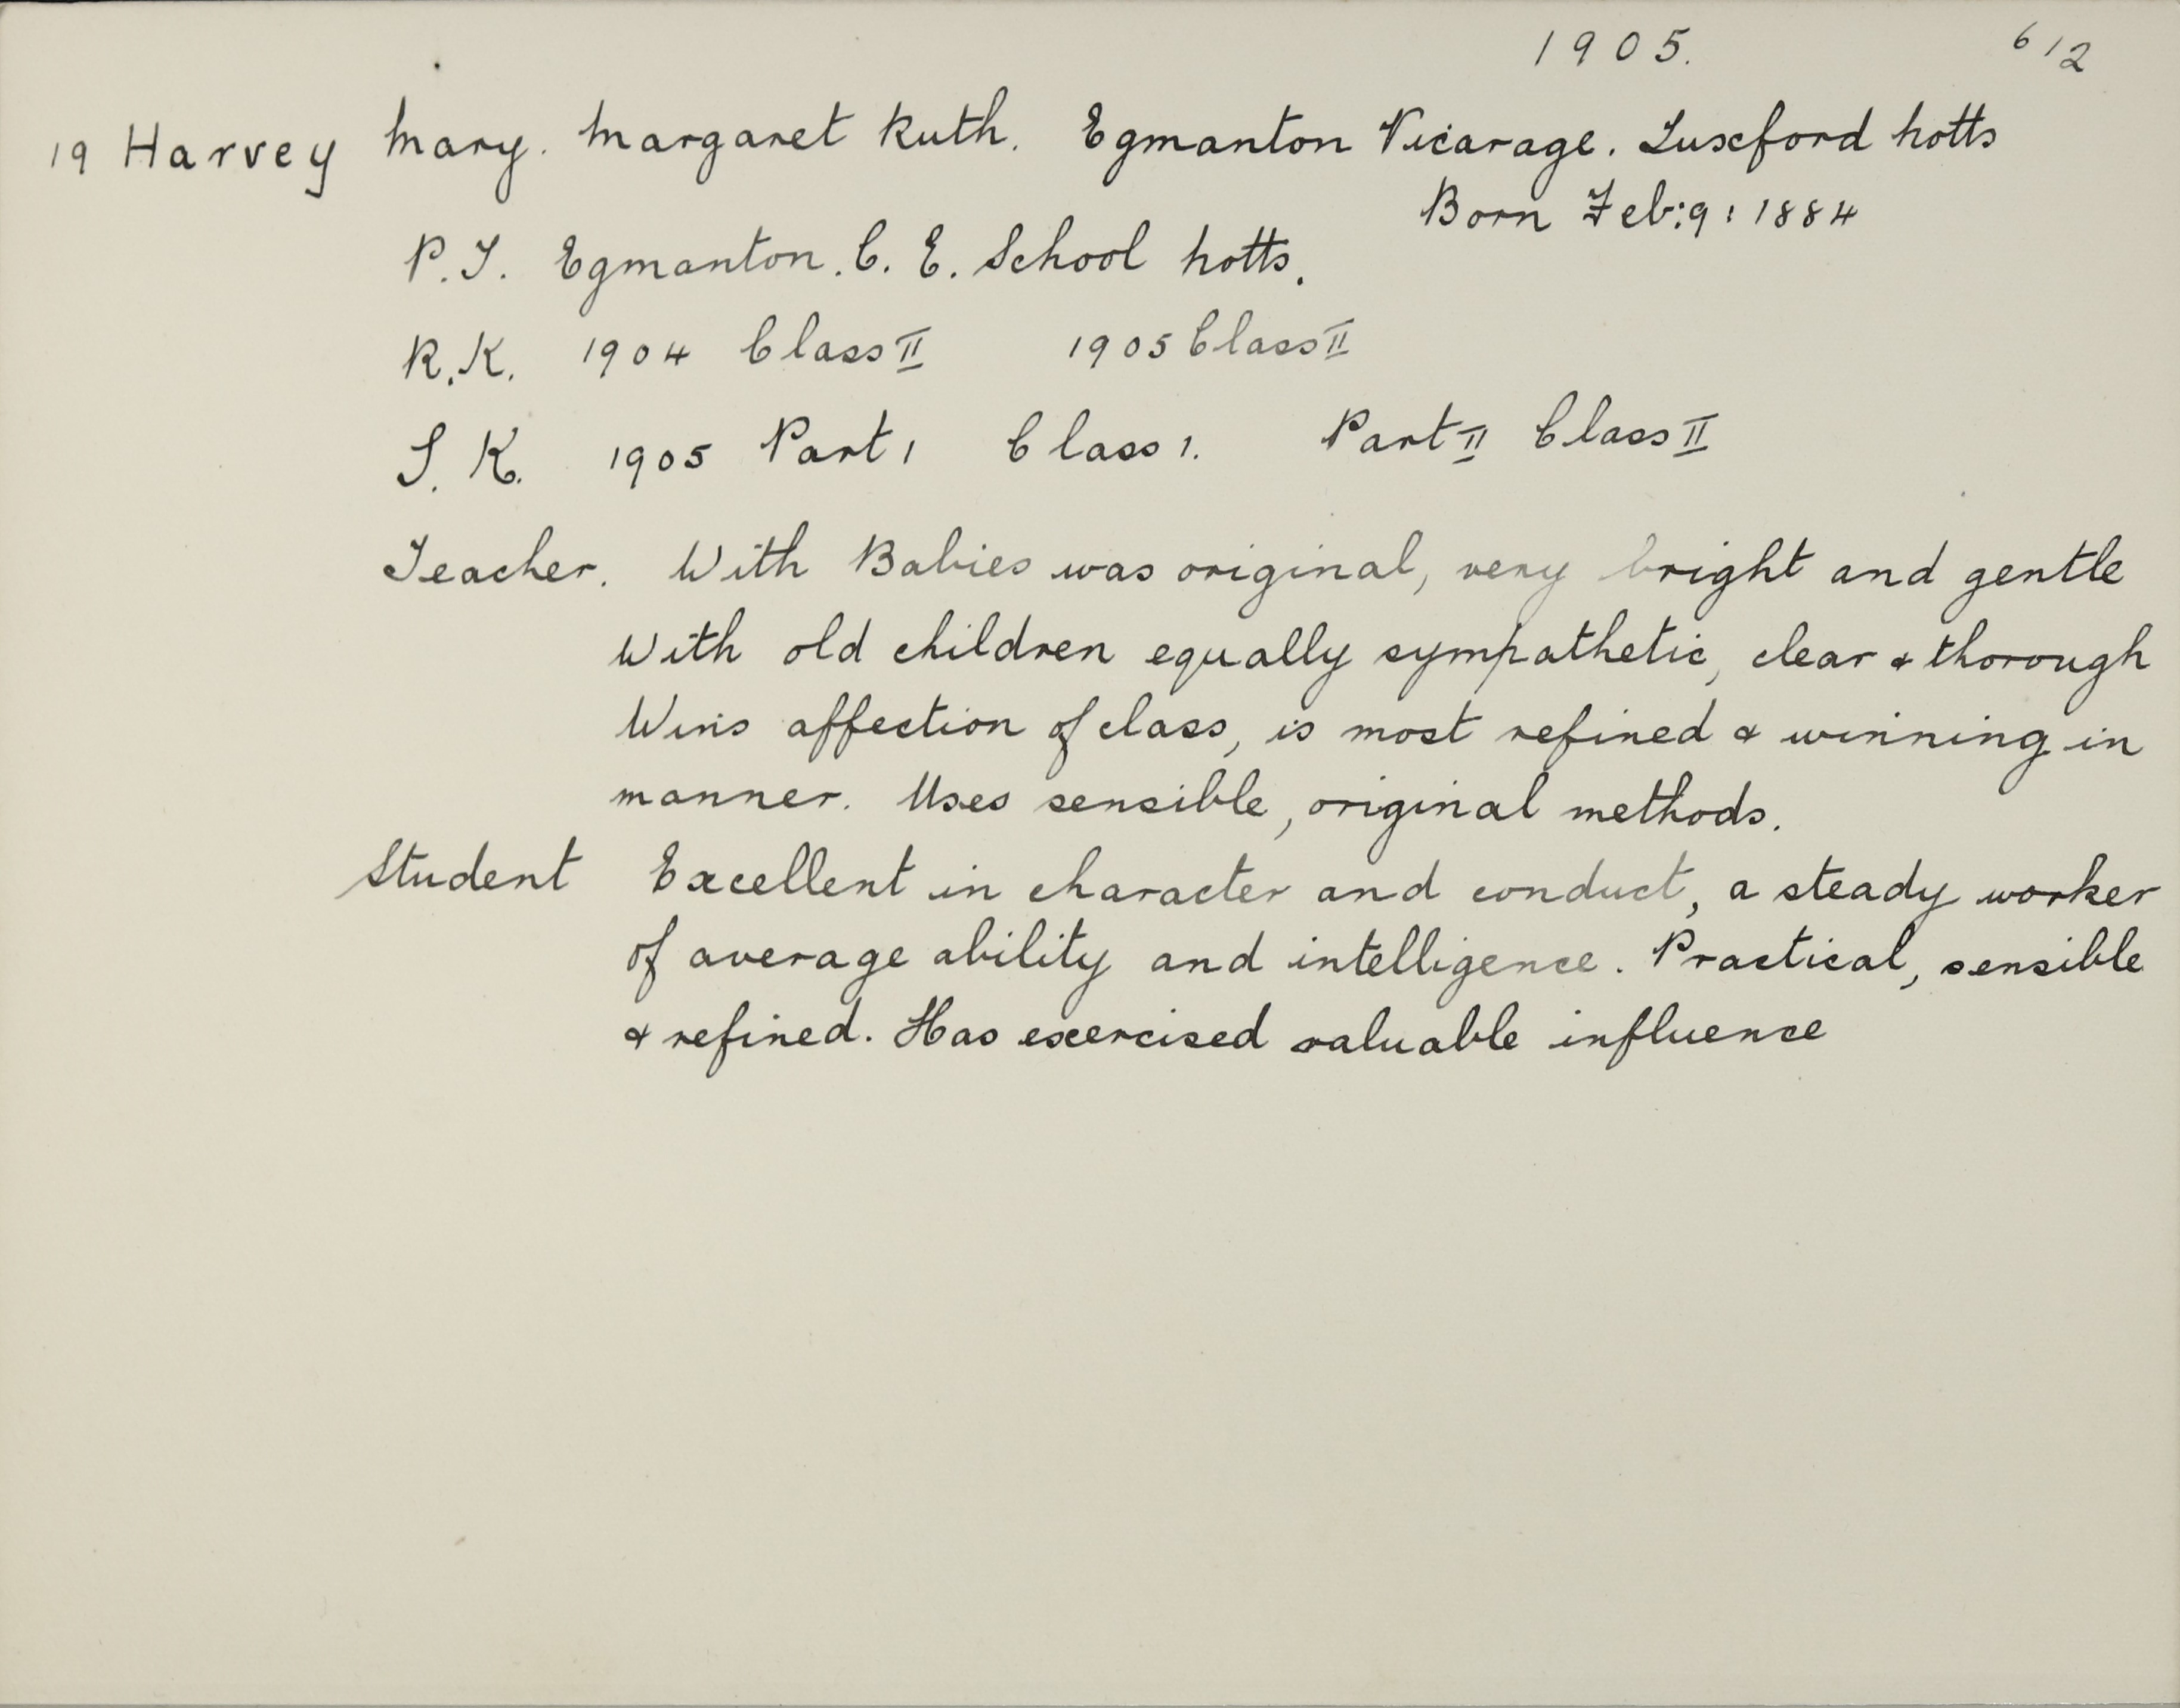 1905. 612
19 Harvey Mary. Margaret Ruth. Egmanton Vicarage. Tuxford Notts
Born Feb: 9: 1884
P.T. Egmanton. C. E. School Notts.
R.K. 1904 Class II 1905 Class II
S. K. 1905 Part 1 Class 1. Part II Class II
Teacher. With Babies was original, very bright and gentle
With old children equally sympathetic, clear & thorough
Wins affection of class, is most refined & winning in
manner. Uses sensible, original methods.
Student Excellent in character and conduct, a steady worker
of average ability and intelligence. Practical, sensible
& refined. Has exercised valuable influence